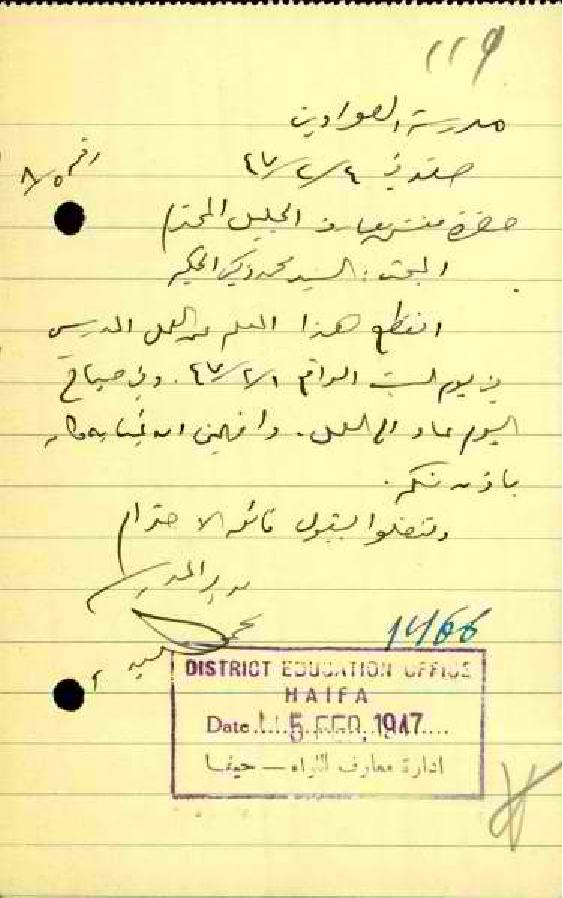 ١١٩
مدرسة الصوادين
رقم ٨/٥
٤٧/٢/٤
حضرة مفتش معارف الجليل المحترم
المبحث: السيد محمد زكي الحكيم
انقطع هذا المعلم عن العمل المدرسي
في يوم السبت الواقع ٤٧/٢/١. وفي صباح
اليوم عاد الى العمل. وافهمني ان غيابه كان
باذن منكم.
وتفضلوا بقبول فائق الاحترام
مدير المدرسة
1466
DISTRICT EDUCATION OFFICE
HAIFA
Date 5 FEB. 1947
ادارة معارف اللواء — حيفا